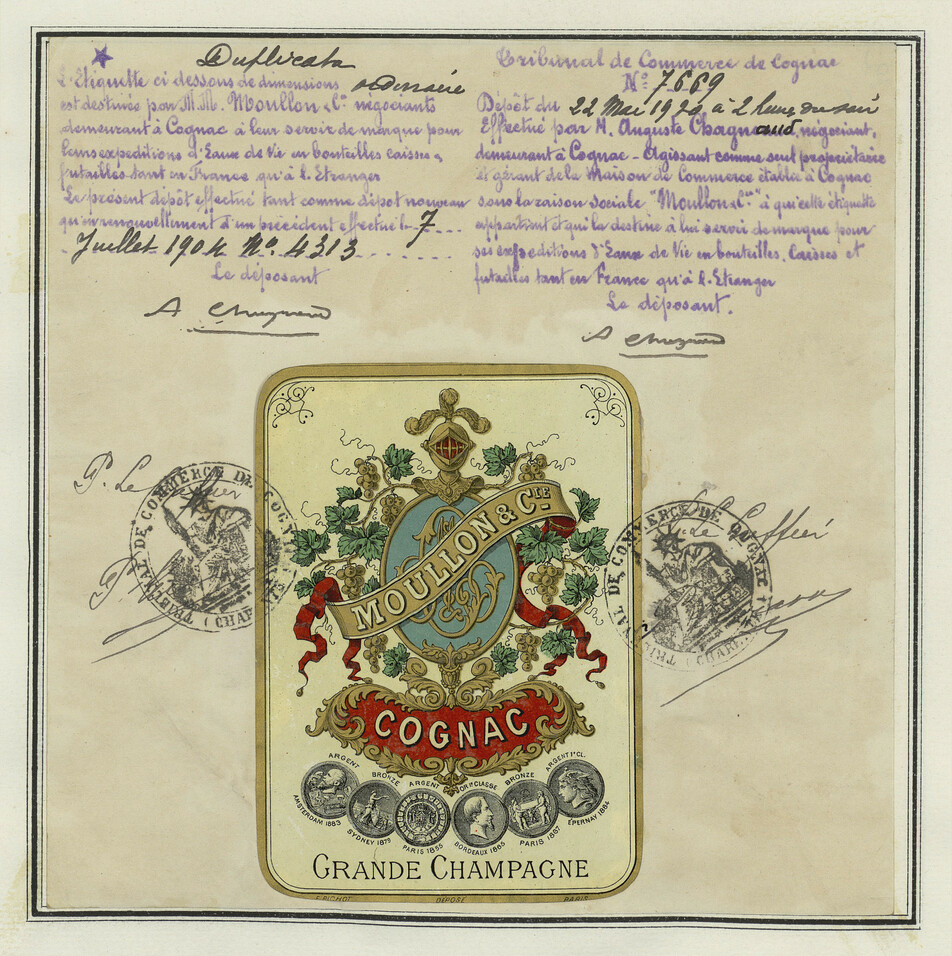 Duplicata
L'Etiquette ci dessous de dimensions
est destinée par M.M. Moullon & Cie négociants
demeurant à Cognac à leur servir de marque pour
leurs expeditions d'Eaux de Vie en bouteilles caisses &
futailles tant en France qu'à l'Etranger
Le présent dépôt effectué tant comme dépot nouveau
qu'en renouvellement d'un précédent effectué le 7
Juillet 1904 No. 4313
Le déposant
Tribunal de Commerce de Cognac
No 7669
Dépôt du 22 Mai 1920 à 2 heures du soir
Effectué par M. Auguste Chagnaud, négociant,
demeurant à Cognac - Agissant comme seul propriétaire
et gérant de la Maison de Commerce établie à Cognac
sous la raison sociale "Moullon & Cie" à qui cette étiquette
appartient et qui la destine à lui servir de marque pour
ses expeditions d'Eaux de Vie en bouteilles, Caisses et
futailles tant en France qu'à l'Etranger
Le déposant.
TRIBUNAL DE COMMERCE DE COGNAC (CHARENTE)
MOULLON & CIE
TRIBUNAL DE COMMERCE DE COGNAC (CHARENTE)
COGNAC
ARGENT BRONZE ARGENT OR 1re CLASSE BRONZE ARGENT 1e CL.
AMSTERDAM 1883 SYDNEY 1879 PARIS 1855 BORDEAUX 1865 PARIS 1867 ÉPERNAY 1884
GRANDE CHAMPAGNE
F. PICHOT DÉPOSÉ PARIS